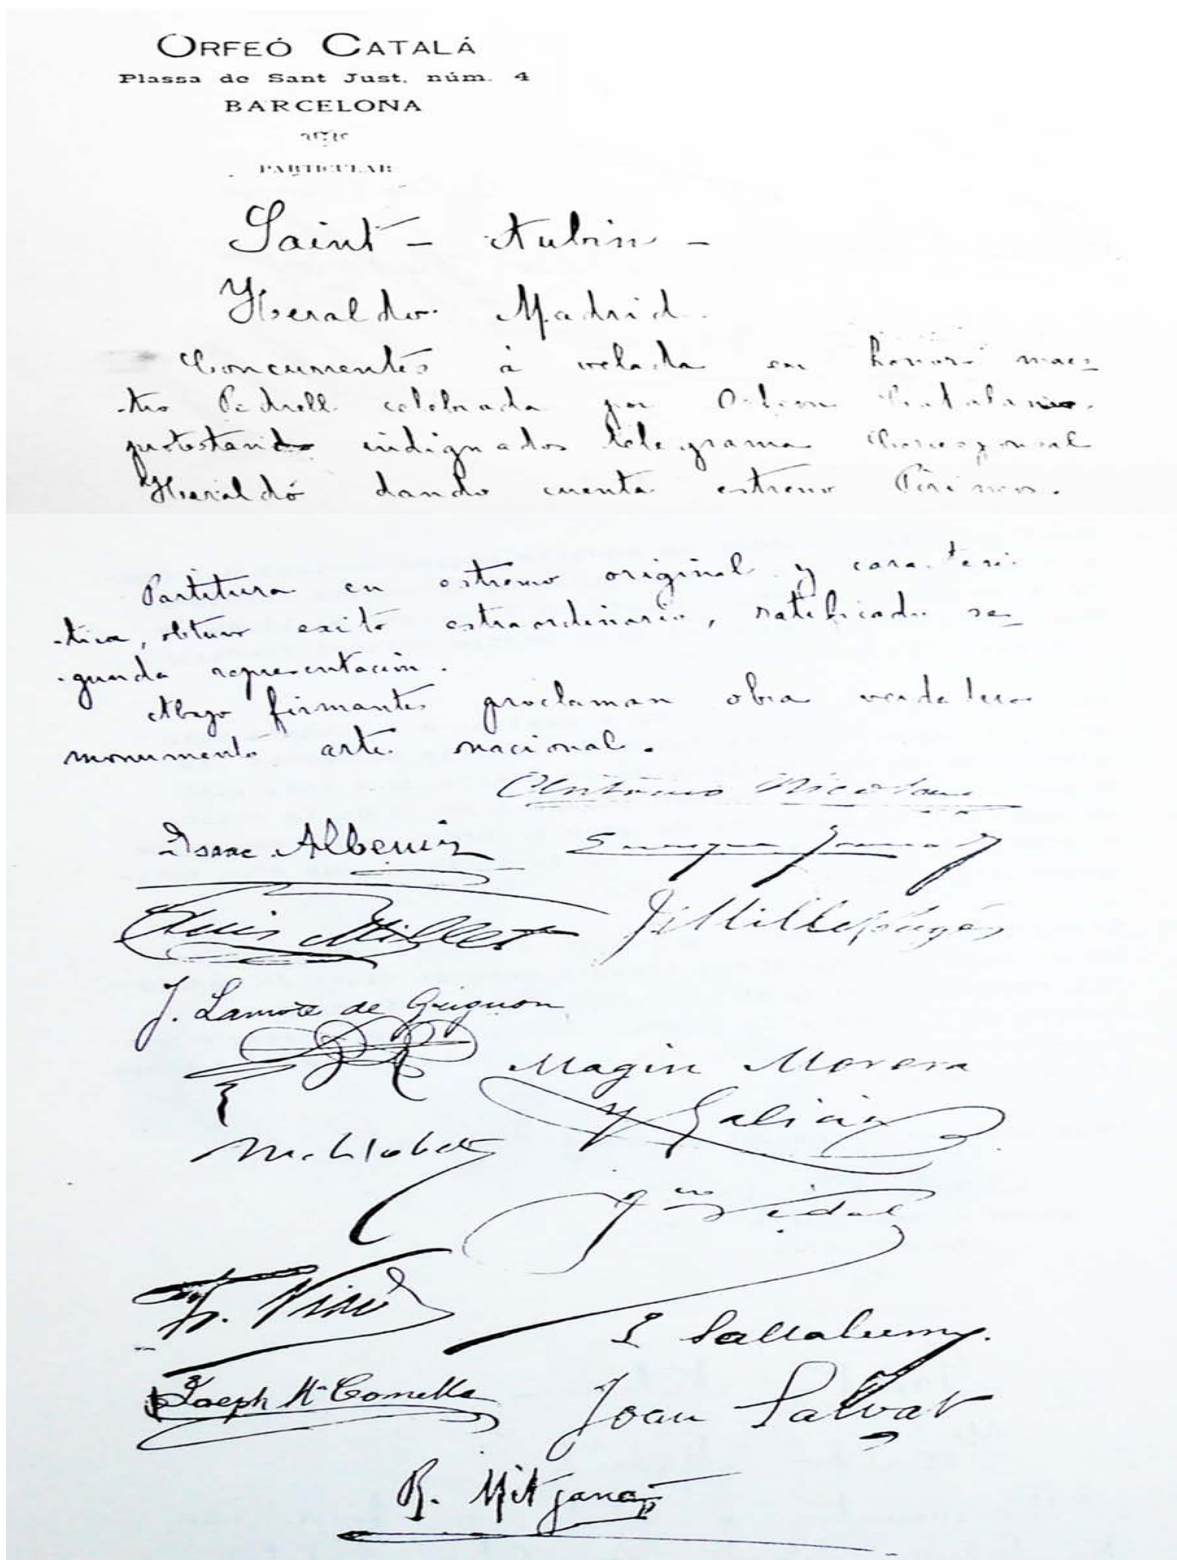 ORFEÓ CATALÁ
Plassa de Sant Just, núm. 4
BARCELONA
PARTICULAR
Saint - Aubin -
Heraldo Madrid.
Concurrentes á velada en honor maes-
tro Pedrell celebrada por Orfeon Catalan
protestando indignados telegrama Corresponsal
Heraldo dando cuenta estreno Pirineos.
Partitura en estremo original y caracterís-
-tica, obtuvo exito estraordinario, ratificado se-
-gunda representación.
Abajo firmantes proclaman obra verdadero
monumento arte nacional.
Antonio Nicolau
Isaac Albeniz Enrique Granados
Lluis Millet J. Millet Pagés
J. Lamote de Grignon
Magin Morera
y Galicia
M. Llobet
Vidal
Viñes
Joseph Mª Comella Joan Salvat
R. Mitjana